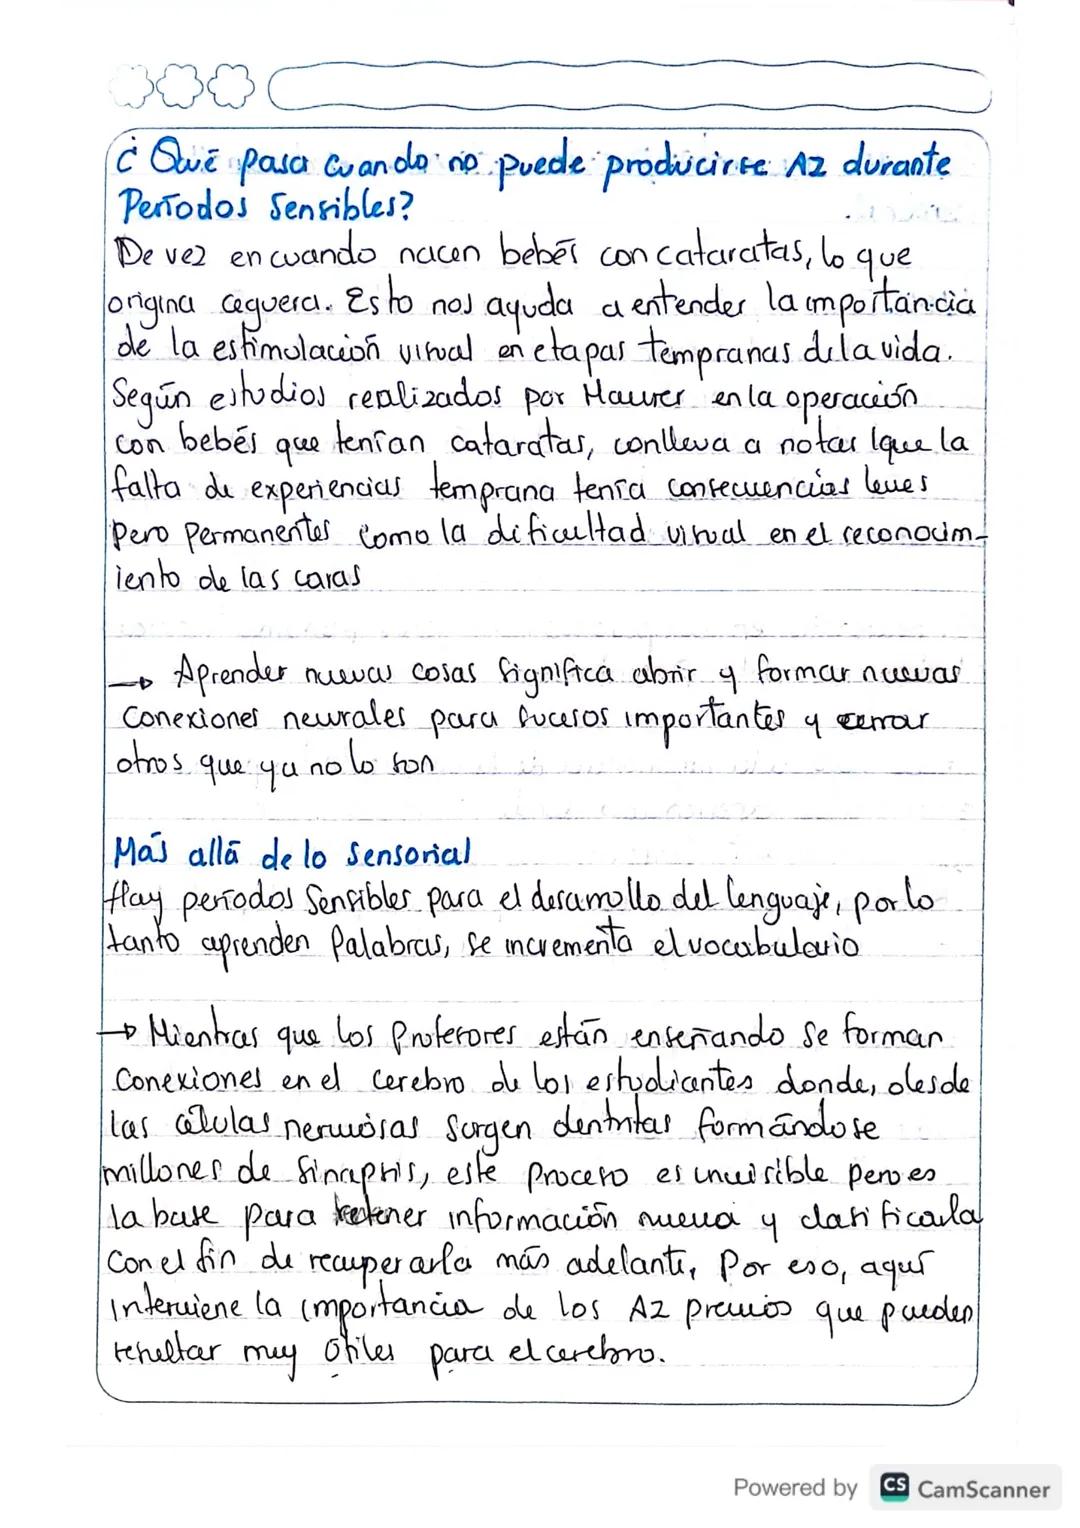 ¿Qué pasa cuando no puede producirse AZ durante
Períodos Sensibles?
De vez en cuando nacen bebés con cataratas, lo que
origina ceguera. Esto nos ayuda a entender la importancia
de la estimulación visual en etapas tempranas de la vida.
Según estudios realizados por Maurer en la operación
con bebés que tenían cataratas, conlleva a notar que la
falta de experiencias temprana tenía consecuencias leves
pero permanentes como la dificultad visual en el reconocim-
iento de las caras
→ Aprender nuevas cosas significa abrir y formar nuevas
conexiones neurales para sucesos importantes y cerrar
otros que ya no lo son
Más allá de lo sensorial
Hay períodos Sensibles para el desarrollo del lenguaje, por lo
tanto aprenden palabras, se incrementa el vocabulario
→ Mientras que los profesores están enseñando se forman
conexiones en el cerebro de los estudiantes donde, desde
las células nerviosas surgen dentritas formándose
millones de sinapsis, este proceso es invisible pero es
la base para retener información nueva y clasificarla
con el fin de recuperarla más adelante, Por eso, aquí
interviene la importancia de los AZ previos que pueden
resultar muy útiles para el cerebro.
Powered by CS CamScanner